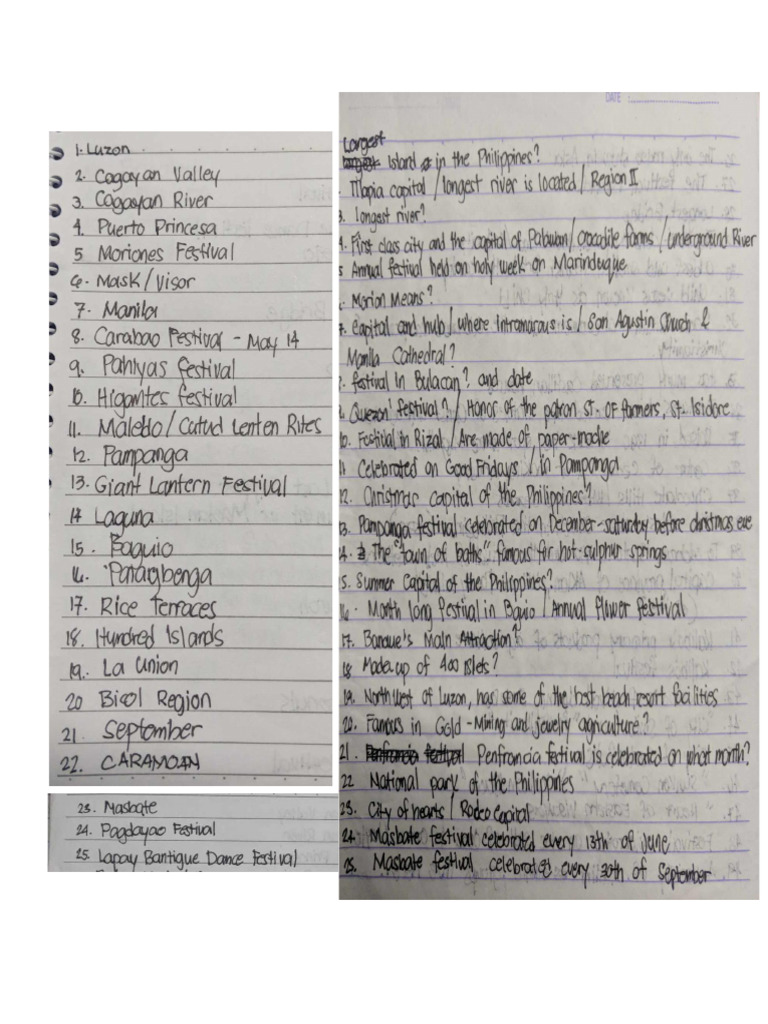 1. Luzon
2. Cagayan Valley
3. Cagayan River
4. Puerto Princesa
5 Moriones Festival
6. Mask/Visor
7. Manila
8. Carabao Festival - May 14
9. Pahiyas festival
10. Higantes festival
11. Maleldo/Catud Lenten Rites
12. Pampanga
13. Giant Lantern Festival
14 Laguna
15. Baguio
16. Panagbenga
17. Rice Terraces
18. Hundred Islands
19. La Union
20 Bicol Region
21. September
22. CARAMOAN
23. Masbate
24. Pagdayao Festival
25. Lapay Bantigue Dance Festival
DATE :
Largest
Island in the Philippines?
capital / longest river is located / Region II
3. longest river?
4. First class city and the capital of Palawan/crocodile farms / underground River
5 Annual festival held on holy week on Marinduque
Morion Means?
7. Capital and hub / where Intramurous is / San Agustin Church &
Manila Cathedral?
festival in Bulacan? and date
Quezon' festival? / Honor of the patron ST. OF farmers, ST. Isidore
10. Festival in Rizal / Are made of paper-mache
11 Celebrated on Good Fridays / in Pampanga
12. Christmas capital of the Philippines?
13. Pampanga festival celebrated on December-saturday before christmas eve
14. The "town of baths" famous for hot-sulphur springs
15. Summer Capital of the Philippines?
16. Month long Festival in Bguio / Annual Flower Festival
17. Banaue's Main Attraction?
18 Made up of 400 islets?
19. North west of Luzon, has some of the best beach resort facilities
20. Famous in Gold-Mining and jewelry agriculture?
21. Penfrancia festival is celebrated on what month?
22 National park of the Philippines
23. City of hearts / Rodeo Capital
24. Masbate festival celebrated every 13th of June
25. Masbate festival celebrated every 30th of September